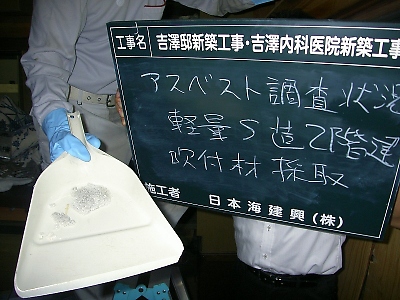 工事名 吉澤邸新築工事・吉澤内科医院新築工事
アスベスト調査状況
軽量S造2階建
吹付材採取
施工者 日本海建興(株)